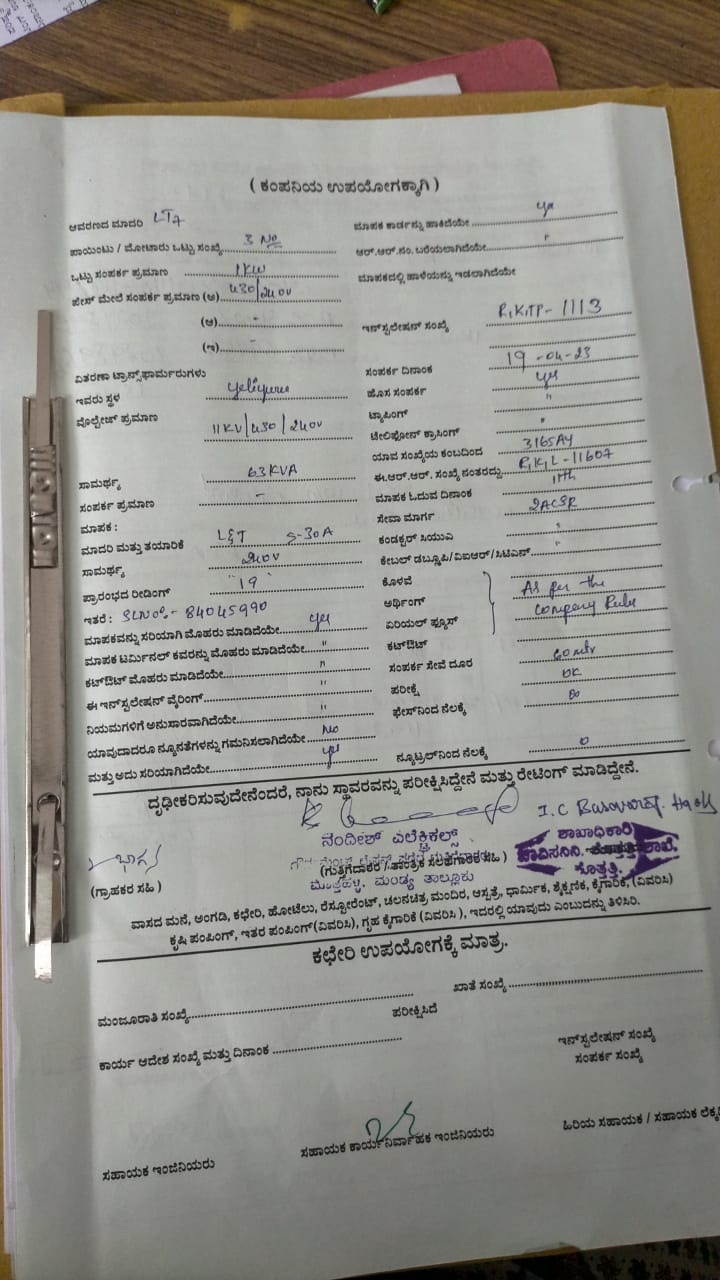 ( ಕಂಪನಿಯ ಉಪಯೋಗಕ್ಕಾಗಿ )
ಆವರಣದ ಮಾದರಿ LT7
ಮಾಪಕ ಕಾರ್ಡನ್ನು ಹಾಕಿದೆಯೇ yes
ಪಾಯಿಂಟು / ಮೋಟಾರು ಒಟ್ಟು ಸಂಖ್ಯೆ 3 No
ಆರ್.ಆರ್.ನಂ. ಬರೆಯಲಾಗಿದೆಯೇ "
ಒಟ್ಟು ಸಂಪರ್ಕ ಪ್ರಮಾಣ 1KW
ಮಾಪಕದಲ್ಲಿ ಹಾಳೆಯನ್ನು ಇಡಲಾಗಿದೆಯೇ
ಫೇಸ್ ಮೇಲೆ ಸಂಪರ್ಕ ಪ್ರಮಾಣ (ಅ) 430/240V
(ಆ) -
ಇನ್‌ಸ್ಟಲೇಷನ್ ಸಂಖ್ಯೆ RKTP-1113
(ಇ) -
ವಿತರಣಾ ಟ್ರಾನ್ಸ್‌ಫಾರ್ಮರುಗಳು
ಸಂಪರ್ಕ ದಿನಾಂಕ 19-04-23
ಇವರು ಸ್ಥಳ Yeliyuru
ಹೊಸ ಸಂಪರ್ಕ yes
ವೊಲ್ಟೇಜ್ ಪ್ರಮಾಣ 11KV/430/240V
ಟ್ಯಾಪಿಂಗ್ "
ಟೆಲಿಫೋನ್ ಕ್ರಾಸಿಂಗ್ "
ಯಾವ ಸಂಖ್ಯೆಯ ಕಂಬದಿಂದ 3165AY
ಸಾಮರ್ಥ್ಯ 63KVA
ಈ.ಆರ್.ಆರ್. ಸಂಖ್ಯೆ ನಂತರದ್ದು RKL-11607
ಸಂಪರ್ಕ ಪ್ರಮಾಣ -
ಮಾಪಕ ಓದುವ ದಿನಾಂಕ 11th
ಮಾಪಕ :
ಸೇವಾ ಮಾರ್ಗ 2ACSR
ಮಾದರಿ ಮತ್ತು ತಯಾರಿಕೆ L&T 5-30A
ಕಂಡಕ್ಟರ್ ಸಿಯುಎ "
ಸಾಮರ್ಥ್ಯ 240V
ಕೇಬಲ್ ಡಬ್ಲೂಪಿ/ವಿಐಆರ್/ಸಿಟಿಎಸ್ "
ಪ್ರಾರಂಭದ ರೀಡಿಂಗ್ "19"
ಕೊಳವೆ
ಇತರೆ : SLNo:- 84045990
ಅರ್ಥಿಂಗ್ As per the
ಮಾಪಕವನ್ನು ಸರಿಯಾಗಿ ಮೊಹರು ಮಾಡಿದೆಯೇ yes
ಏರಿಯಲ್ ಫ್ಯೂಸ್ Company Rules
ಮಾಪಕ ಟರ್ಮಿನಲ್ ಕವರನ್ನು ಮೊಹರು ಮಾಡಿದೆಯೇ "
ಕಟ್‌ಔಟ್
ಕಟ್‌ಔಟ್ ಮೊಹರು ಮಾಡಿದೆಯೇ "
ಸಂಪರ್ಕ ಸೇವೆ ದೂರ
ಈ ಇನ್‌ಸ್ಟಲೇಷನ್ ವೈರಿಂಗ್ "
ಪರೀಕ್ಷೆ OK
ನಿಯಮಗಳಿಗೆ ಅನುಸಾರವಾಗಿದೆಯೇ "
ಫೇಸ್‌ನಿಂದ ನೆಲಕ್ಕೆ
ಯಾವುದಾದರೂ ನ್ಯೂನತೆಗಳನ್ನು ಗಮನಿಸಲಾಗಿದೆಯೇ No
ಮತ್ತು ಅದು ಸರಿಯಾಗಿದೆಯೇ yes
ನ್ಯೂಟ್ರಲ್‌ನಿಂದ ನೆಲಕ್ಕೆ 0
ದೃಢೀಕರಿಸುವುದೇನೆಂದರೆ, ನಾನು ಸ್ಥಾವರವನ್ನು ಪರೀಕ್ಷಿಸಿದ್ದೇನೆ ಮತ್ತು ರೇಟಿಂಗ್ ಮಾಡಿದ್ದೇನೆ.
ನಂದೀಶ್ ಎಲೆಕ್ಟ್ರಿಕಲ್ಸ್
ಶಾಖಾಧಿಕಾರಿ
(ಗುತ್ತಿಗೆದಾರರ / ತಾಂತ್ರಿಕ ಸಲಹೆಗಾರರ ಸಹಿ )
(ಗ್ರಾಹಕರ ಸಹಿ )
ಮಂಡ್ಯ ತಾಲ್ಲೂಕು
ವಾಸದ ಮನೆ, ಅಂಗಡಿ, ಕಛೇರಿ, ಹೋಟೆಲು, ರೆಸ್ಟೋರೆಂಟ್, ಚಲನಚಿತ್ರ ಮಂದಿರ, ಆಸ್ಪತ್ರೆ, ಧಾರ್ಮಿಕ, ಶೈಕ್ಷಣಿಕ, ಕೈಗಾರಿಕೆ, (ವಿವರಿಸಿ)
ಕೃಷಿ ಪಂಪಿಂಗ್, ಇತರ ಪಂಪಿಂಗ್(ವಿವರಿಸಿ), ಗೃಹ ಕೈಗಾರಿಕೆ (ವಿವರಿಸಿ ), ಇದರಲ್ಲಿ ಯಾವುದು ಎಂಬುದನ್ನು ತಿಳಿಸಿರಿ.
ಕಛೇರಿ ಉಪಯೋಗಕ್ಕೆ ಮಾತ್ರ.
ಮಂಜೂರಾತಿ ಸಂಖ್ಯೆ
ಖಾತೆ ಸಂಖ್ಯೆ
ಪರೀಕ್ಷಿಸಿದೆ
ಕಾರ್ಯ ಆದೇಶ ಸಂಖ್ಯೆ ಮತ್ತು ದಿನಾಂಕ
ಇನ್‌ಸ್ಟಲೇಷನ್ ಸಂಖ್ಯೆ
ಸಂಪರ್ಕ ಸಂಖ್ಯೆ
ಸಹಾಯಕ ಇಂಜಿನಿಯರು
ಸಹಾಯಕ ಕಾರ್ಯನಿರ್ವಾಹಕ ಇಂಜಿನಿಯರು
ಹಿರಿಯ ಸಹಾಯಕ / ಸಹಾಯಕ